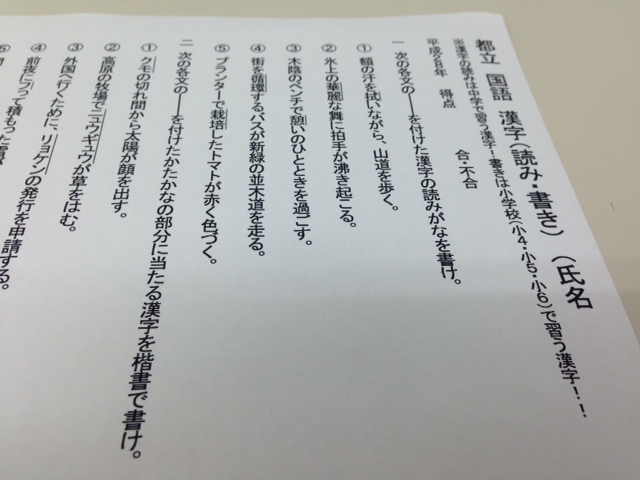 都立 国語 漢字(読み・書き) (氏名
※漢字の読みは中学で習う漢字!書きは小学校(小4・小5・小6)で習う漢字!!
平成26年 得点 合・不合
一 次の各文の――を付けた漢字の読みがなを書け。
① 額の汗を拭いながら、山道を歩く。
② 氷上の華麗な舞に拍手が沸き起こる。
③ 木陰のベンチで憩いのひとときを過ごす。
④ 街を循環するバスが新緑の並木道を走る。
⑤ プランターで栽培したトマトが赤く色づく。
二 次の各文の――を付けたかたかなの部分に当たる漢字を楷書で書け。
① クモの切れ間から太陽が顔を出す。
② 高原の牧場でニュウギュウが草をはむ。
③ 外国へ行くために、リョケンの発行を申請する。
④ 前夜にフって積もった雪が
⑤